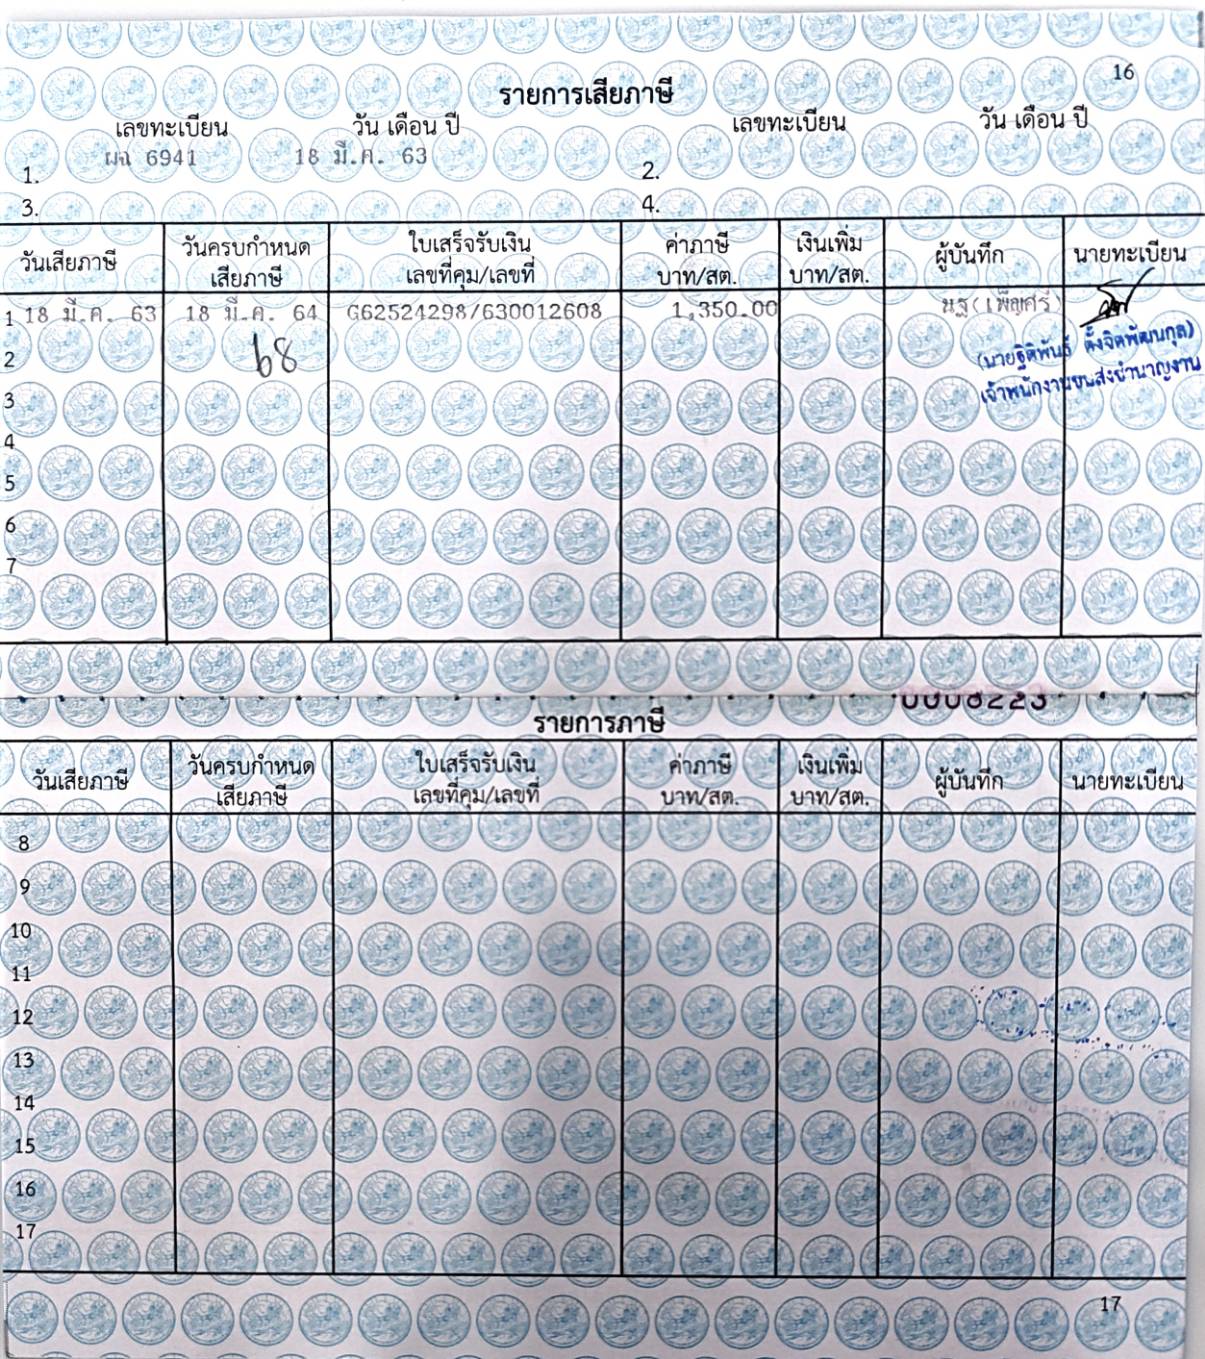 16
รายการเสียภาษี
เลขทะเบียน วัน เดือน ปี เลขทะเบียน วัน เดือน ปี
1. ผฉ 6941 18 มี.ค. 63 2.
3. 4.
วันเสียภาษี วันครบกำหนด เสียภาษี ใบเสร็จรับเงิน เลขที่คุม/เลขที่ ค่าภาษี บาท/สต. เงินเพิ่ม บาท/สต. ผู้บันทึก นายทะเบียน
1 18 มี.ค. 63 18 มี.ค. 64 G62524298/630012608 1,350.00 นฐ(เพ็ญศรี)
2 68 (นายฐิติพันธ์ ตั้งจิตพัฒนกุล)
3 เจ้าพนักงานขนส่งชำนาญงาน
4
5
6
7
0008223
รายการภาษี
วันเสียภาษี วันครบกำหนด เสียภาษี ใบเสร็จรับเงิน เลขที่คุม/เลขที่ ค่าภาษี บาท/สต. เงินเพิ่ม บาท/สต. ผู้บันทึก นายทะเบียน
8
9
10
11
12
13
14
15
16
17
17